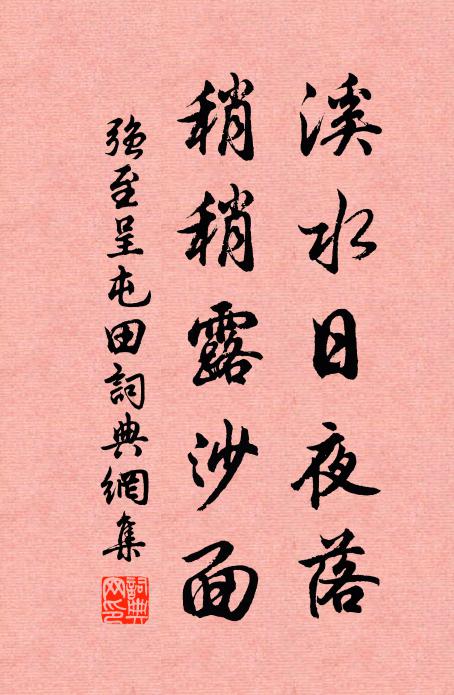 溪水日夜落
稍稍露沙面
強至呈屯田詞典網集
詞典网印